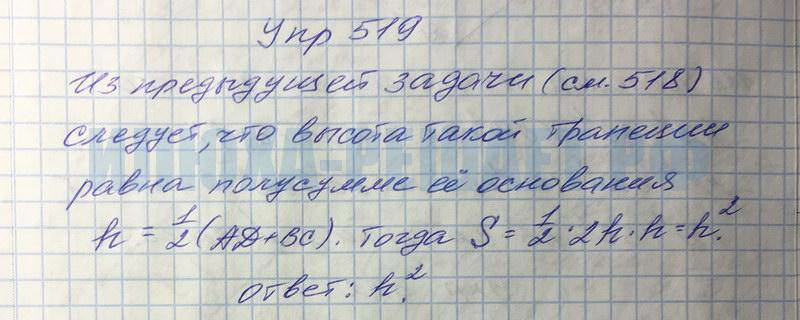 Упр 519
Из предыдущей задачи (см. 518)
следует, что высота такой трапеции
равна полусумме её основания
h = 1/2 (AD+BC). Тогда S = 1/2 · 2h · h = h².
ответ: h².